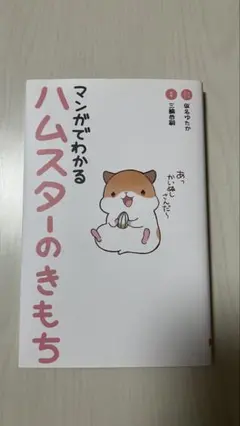 マンガでわかる
ハムスターのきもち
あっ
かいぬし
さんだ〜